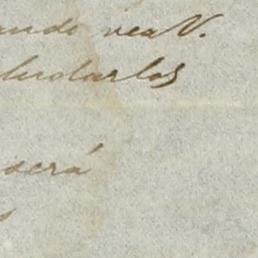 ando vea V.
ludarlos
será
s